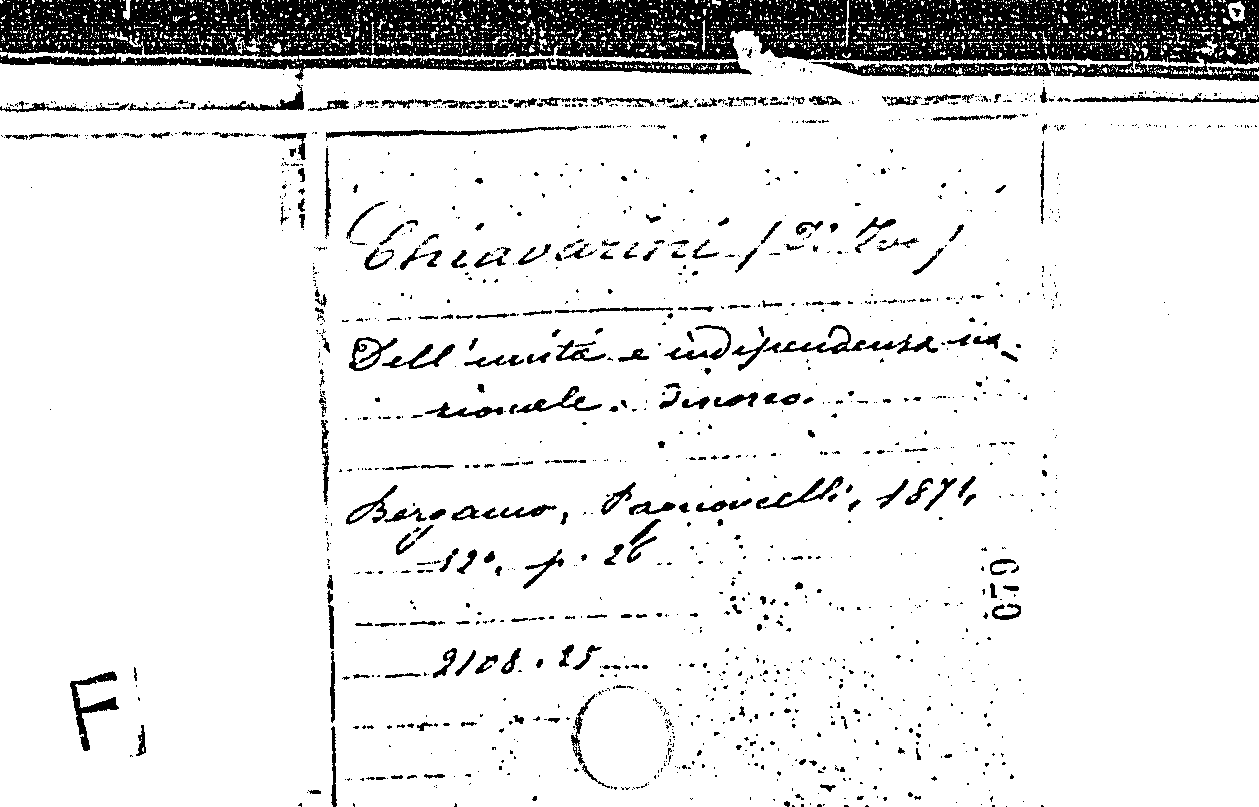 Chiavarini (
Dell'unità e indipendenza na-
zionale. Discorso.
Bergamo, Pagnoncelli, 1871,
12°, p. 26
2108.25
079
F